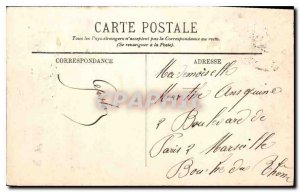 CARTE POSTALE
Tous les Pays étrangers n'acceptent pas la Correspondance au recto.
(Se renseigner à la Poste).
CORRESPONDANCE
ADRESSE
Mademoiselle
2 Boulevard de
Paris 2 Marseille
Bouches du Rhône